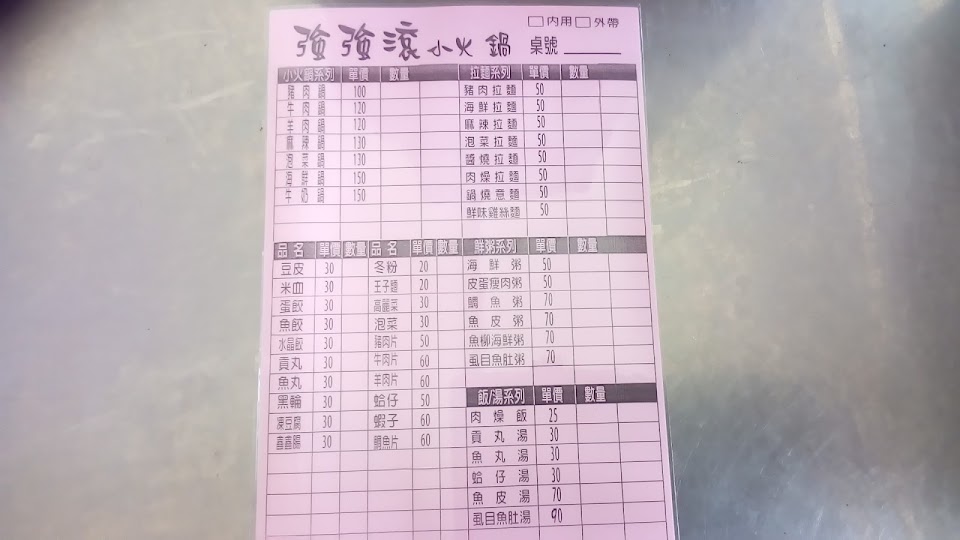 □內用□外帶
強強滾小火鍋 桌號
小火鍋系列 單價 數量
豬肉鍋 100
牛肉鍋 120
羊肉鍋 120
麻辣鍋 130
泡菜鍋 130
海鮮鍋 150
牛奶鍋 150
拉麵系列 單價 數量
豬肉拉麵 50
海鮮拉麵 50
麻辣拉麵 50
泡菜拉麵 50
醬燒拉麵 50
肉燥拉麵 50
鍋燒意麵 50
鮮味雞絲麵 50
品名 單價 數量 品名 單價 數量
豆皮 30 冬粉 20
米血 30 王子麵 20
蛋餃 30 高麗菜 30
魚餃 30 泡菜 30
水晶餃 30 豬肉片 50
貢丸 30 牛肉片 60
魚丸 30 羊肉片 60
黑輪 30 蛤仔 50
凍豆腐 30 蝦子 60
鑫鑫腸 30 鯛魚片 60
鮮粥系列 單價 數量
海鮮粥 50
皮蛋瘦肉粥 50
鯛魚粥 70
魚皮粥 70
魚柳海鮮粥 70
虱目魚肚粥 70
飯/湯系列 單價 數量
肉燥飯 25
貢丸湯 30
魚丸湯 30
蛤仔湯 30
魚皮湯 70
虱目魚肚湯 90